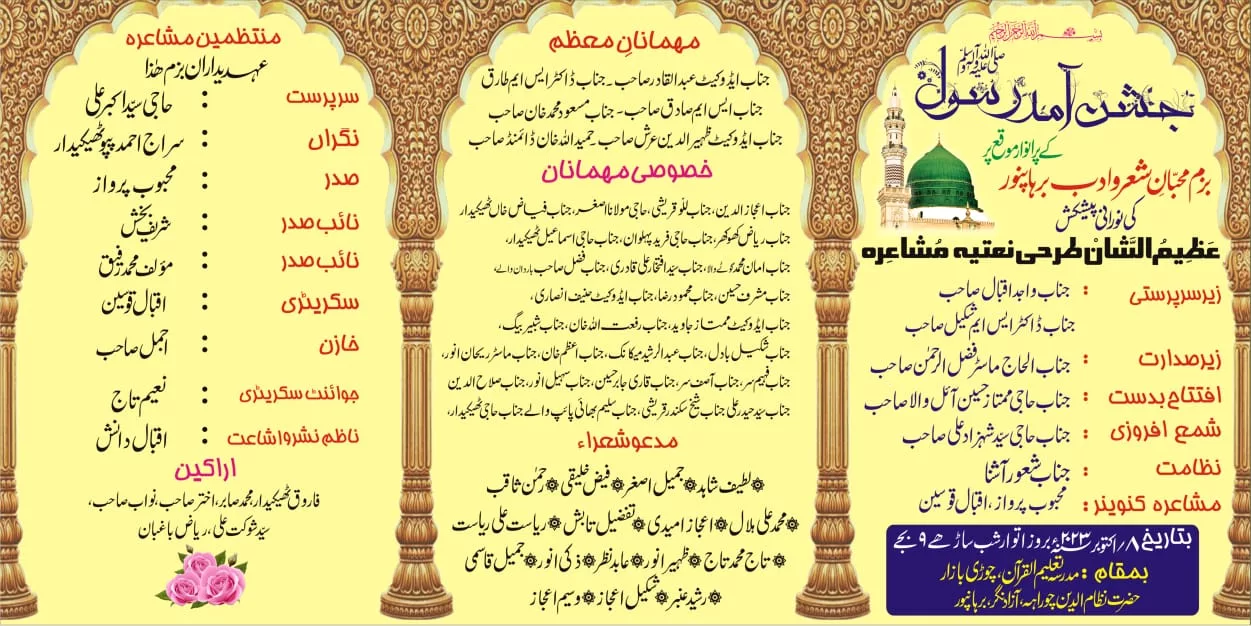 بسم اللہ الرحمن الرحیم
صلی اللہ علیہ وآلہ وسلم
جشن آمد رسول
کے پرانوار موقع پر
بزم محبّانِ شعر و ادب برہانپور
کی نورانی پیشکش
عَظِیمُ الشَّانْ طرحی نعتیہ مُشاعرہ
زیر سرپرستی : جناب واجد اقبال صاحب
جناب ڈاکٹر ایس ایم شکیل صاحب
زیر صدارت : جناب الحاج ماسٹر فضل الرحمٰن صاحب
افتتاح بدست : جناب حاجی ممتاز حسین آئل والا صاحب
شمع افروزی : جناب حاجی سید شہزاد علی صاحب
نظامت : جناب شعور آشنا
مشاعرہ کنوینر : محبوب پرواز، اقبال قوسین
بتاریخ ۸/ اکتوبر ۲۰۲۳ء بروز اتوار شب ساڑھے ۹ بجے
بمقام : مدرسہ تعلیم القرآن، چوڑی بازار
حضرت نظام الدین چوراہہ، آزاد نگر، برہانپور
مہمانانِ معظم
جناب ایڈوکیٹ عبدالقادر صاحب ۔ جناب ڈاکٹر ایس ایم طارق
جناب ایس ایم صادق صاحب ۔ جناب مسعود محمد خان صاحب
جناب ایڈوکیٹ ظہیر الدین عرش صاحب ۔ حمید اللہ خان ڈائمنڈ صاحب
خصوصی مہمانان
جناب اعجاز الدین، جناب للّو قریشی، حاجی مولانا اصغر، جناب فیاض خاں ٹھیکیدار
جناب ریاض کھوکھر، جناب حاجی فرید پہلوان، جناب حاجی اسماعیل ٹھیکیدار،
جناب امان محمد گوٹے والا، جناب سید افتخار علی قادری، جناب فضل صاحب باردان والے،
جناب مشرف حسین، جناب محمود رضا، جناب ایڈوکیٹ حنیف انصاری،
جناب ایڈوکیٹ ممتاز جاوید، جناب رفعت اللہ خان، جناب شبیر بیگ،
جناب شکیل بادل، جناب عبدالرشید میکانک، جناب اعظم خان، جناب ماسٹر ریحان انور،
جناب فہیم سر، جناب آصف سر، جناب قاری جابر حسین، جناب سہیل انور، جناب صلاح الدین
جناب سید حیدر علی جناب شیخ سکندر قریشی، جناب سلیم بھائی پائپ والے جناب حاجی ٹھیکیدار،
مدعو شعراء
۞ لطیف شاہد ۞ جمیل اصغر ۞ فیض خلیقی ۞ رحمٰن ثاقب
۞ محمد علی ہلال ۞ اعجاز امیدی ۞ تفضیل تابش ۞ ریاست علی ریاست
۞ تاج محمد تاج ۞ ظہیر انور ۞ عابد نظر ۞ ذکی انور ۞ جمیل قاسمی
۞ رشید عنبر ۞ شکیل اعجاز ۞ وسیم اعجاز
منتظمین مشاعرہ
عہدیداران بزم ھٰذا
سرپرست : حاجی سید اکبر علی
نگراں : سراج احمد پپو ٹھیکیدار
صدر : محبوب پرواز
نائب صدر : شریف بخش
نائب صدر : مؤلف محمد رفیق
سکریٹری : اقبال قوسین
خازن : اجمل صاحب
جوائنٹ سکریٹری : نعیم تاج
ناظم نشر و اشاعت : اقبال دانش
اراکین
فاروق ٹھیکیدار، محمد صابر، اختر صاحب، نواب صاحب،
سید شوکت علی، ریاض باغبان